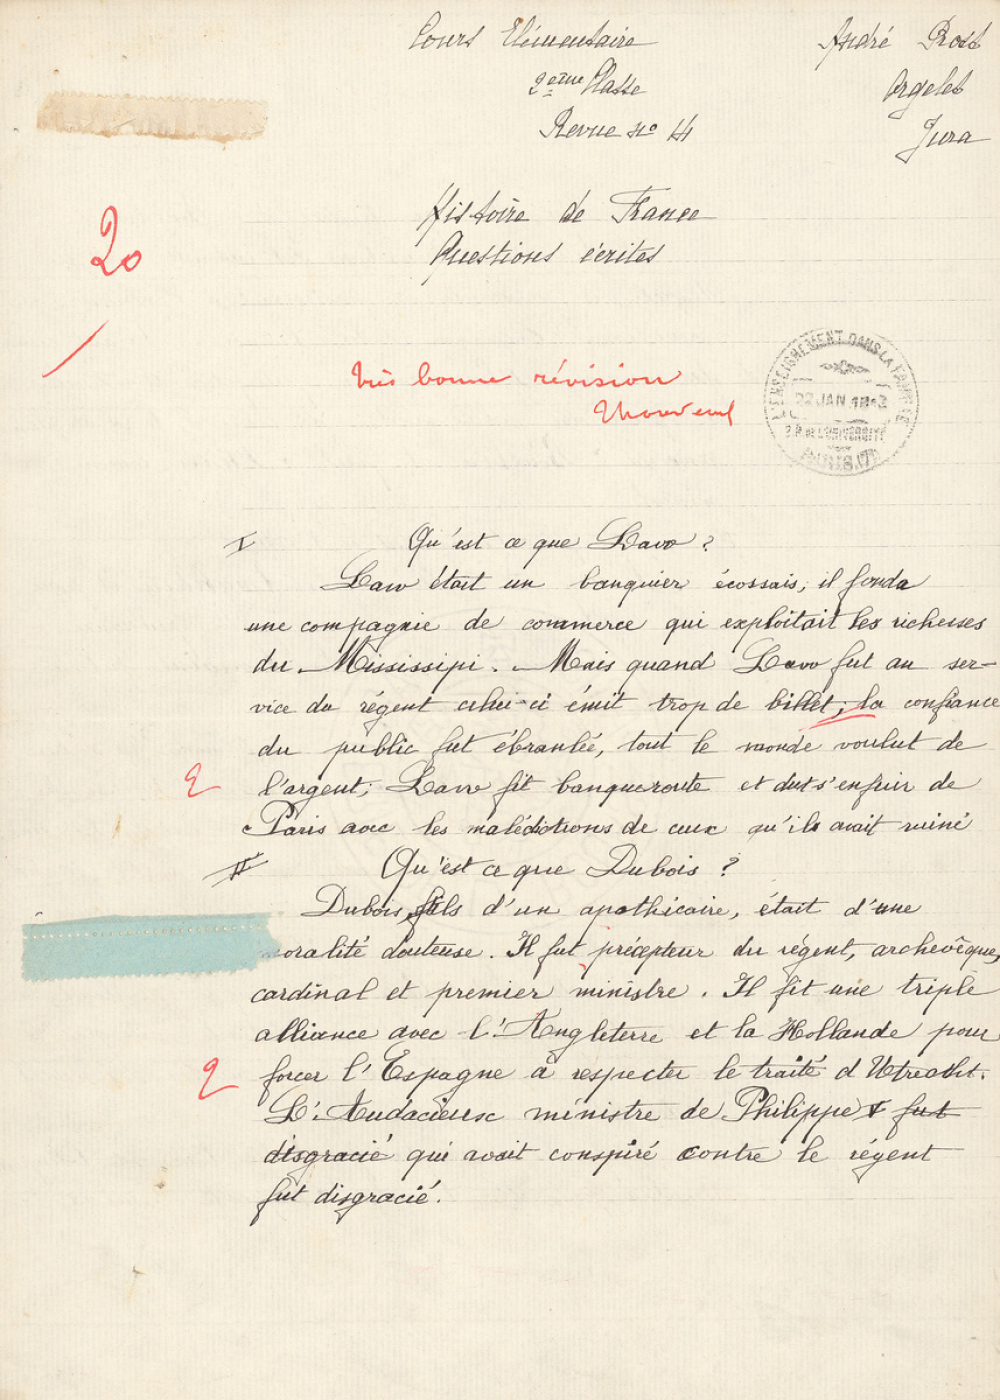 Cours Elémentaire
André Prost
2ème Classe
Orgelet
Revue no 14
Jura
Histoire de France
Questions écrites
20
Très bonne révision
L'ENSEIGNEMENT DANS LA FAMILLE
22 JAN
PARIS
I Qu'est ce que Law ?
Law était un banquier écossais, il fonda
une compagnie de commerce qui exploitait les richesses
du Mississipi. Mais quand Law fut au ser-
vice du régent celui-ci émit trop de billet; la confiance
du public fut ébranlée, tout le monde voulut de
l'argent; Law fit banqueroute et dut s'enfuir de
Paris avec les malédictions de ceux qu'ils avait ruiné
II Qu'est ce que Dubois ?
Dubois, fils d'un apothicaire, était d'une
moralité douteuse. Il fut précepteur du régent, archevêque,
cardinal et premier ministre. Il fit une triple
alliance avec l'Angleterre et la Hollande pour
forcer l'Espagne à respecter le traité d'Utrecht.
L'Audacieux ministre de Philippe V fut
disgracié qui avait conspiré contre le régent
fut disgracié.